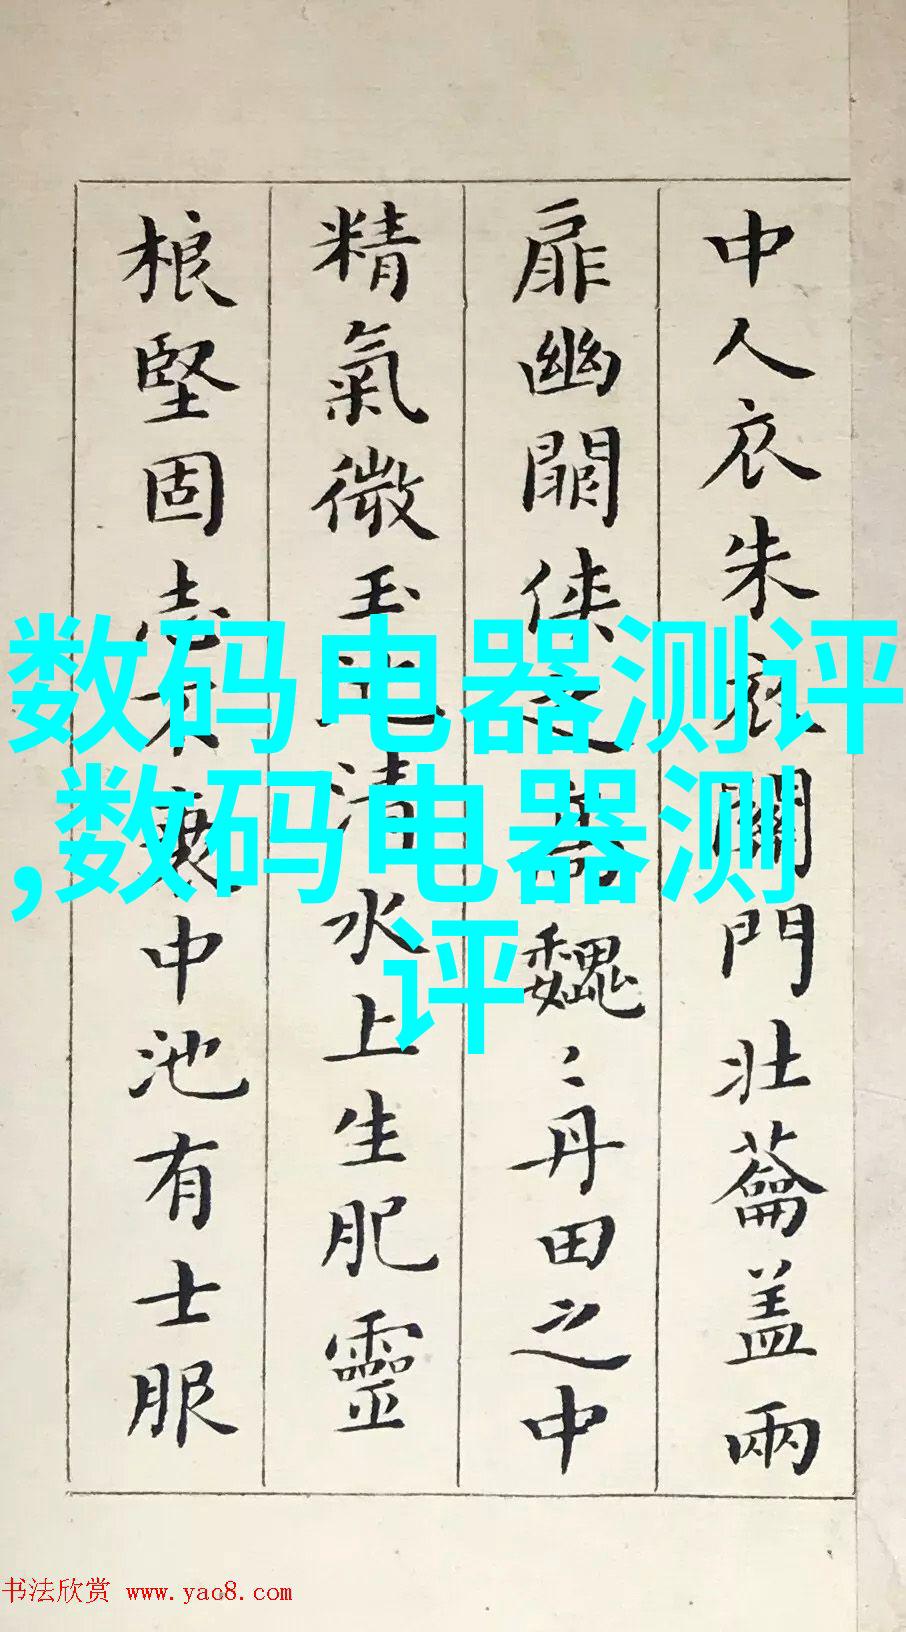 中人衣朱衣關門壯蘥盖兩
扉幽關俠之高魏〻丹田之中
精氣微玉池清水上生肥靈
根堅固志不衰中池有士服
数码电器测评
,数码电器测
评
书法欣赏 www.yac8.com